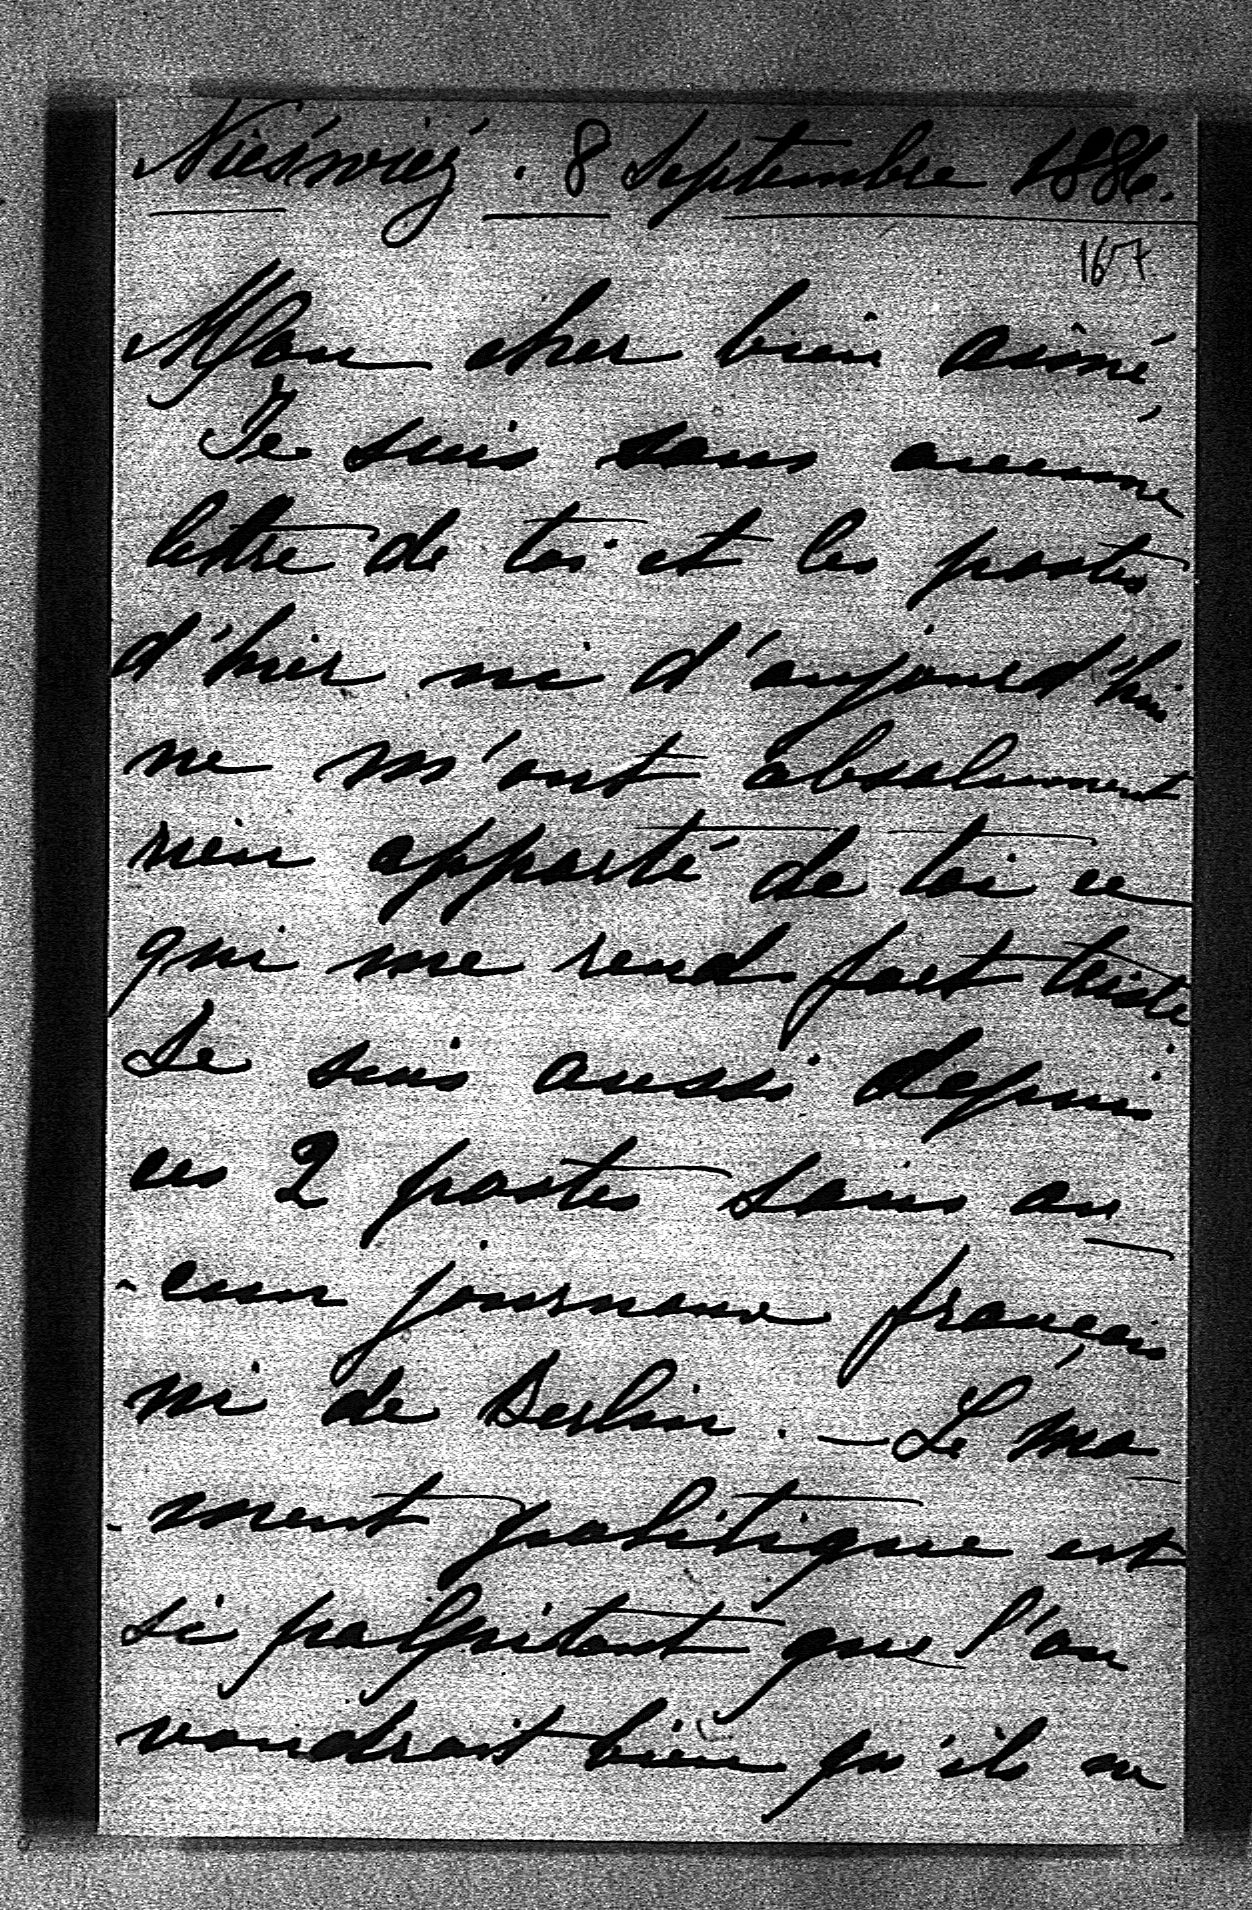 Nieśwież. 8 Septembre 1886.
167
Mon cher bien aimé,
Je suis sans aucune
lettre de toi et les postes
d'hier ni d'aujourd'hui
ne m'ont absolument
rien apporté de toi ce
qui me rend fort triste.
Je suis aussi depuis
ces 2 postes sans au
-cun journaux français
ni de Berlin. — Le mo
-ment politique est
si palpitant que l'on
voudrait bien qu'ils ne